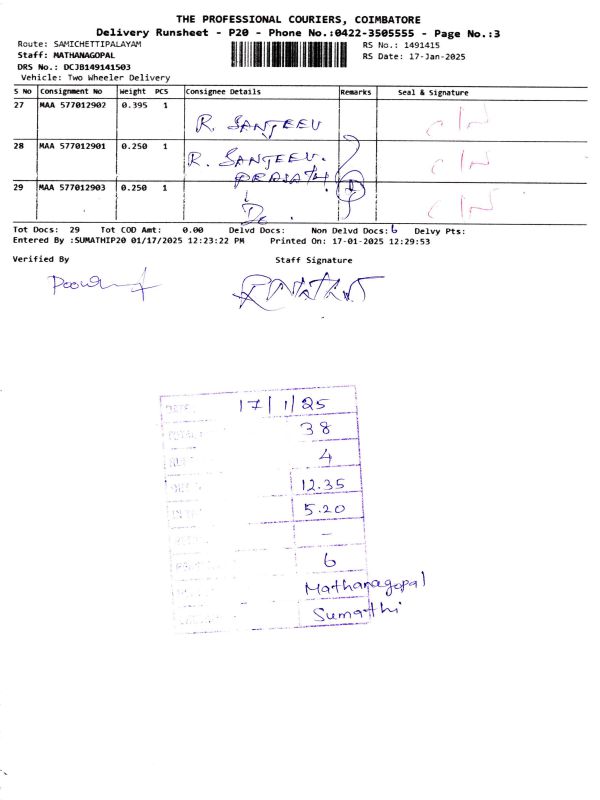 THE PROFESSIONAL COURIERS, COIMBATORE
Delivery Runsheet - P20 - Phone No.:0422-3505555 - Page No.:3
Route: SAMICHETTIPALAYAM RS No.: 1491415
Staff: MATHANAGOPAL RS Date: 17-Jan-2025
DRS No.: DCJB149141503
Vehicle: Two Wheeler Delivery
S No Consignment No Weight PCS Consignee Details Remarks Seal & Signature
27 MAA 577012902 0.395 1
R. SANJEEV
28 MAA 577012901 0.250 1
R. SANJEEV.
PRASATH
29 MAA 577012903 0.250 1
Tot Docs: 29 Tot COD Amt: 0.00 Delvd Docs: Non Delvd Docs: 6 Delvy Pts:
Entered By :SUMATHIP20 01/17/2025 12:23:22 PM Printed On: 17-01-2025 12:29:53
Verified By Staff Signature
17/1/25
38
4
12.35
5.20
-
6
Mathanagopal
Sumathi